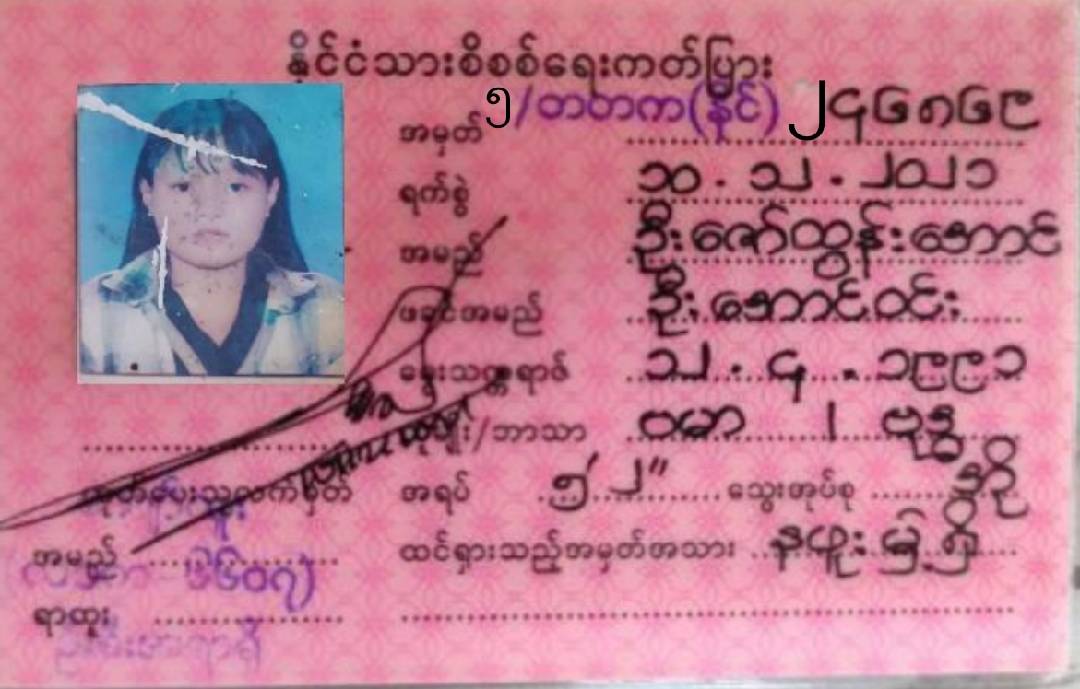 နိုင်ငံသားစိစစ်ရေးကတ်ပြား
အမှတ် ၅/ဘတက(နိုင်) ၂၄၆၈၆၉
ရက်စွဲ ၁၀.၁၂.၂၀၂၁
အမည် ဦးဇော်ထွန်းအောင်
ဖခင်အမည် ဦးအောင်ဝင်း
မွေးသက္ကရာဇ် ၁၂.၄.၁၉၉၁
လူမျိုး/ဘာသာ ဗမာ / ဗုဒ္ဓ
အရပ် ၅' ၂" သွေးအုပ်စု ဘို
ထုတ်ပေးသူလက်မှတ်
ထင်ရှားသည့်အမှတ်အသား နဖူးမှဲ့ရှိ
အမည်
ရာထူး